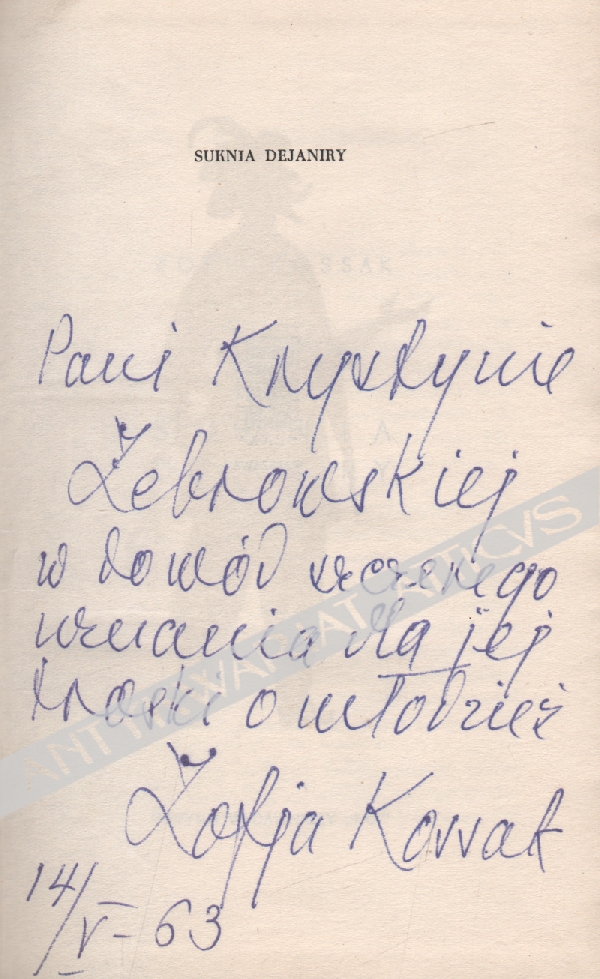 SUKNIA DEJANIRY
Pani Krystynie
Żebrowskiej
w dowód szczerego
uznania dla jej
troski o młodzież
Zofja Kossak
14/V-63
ANTYKWARIAT ATTICVS